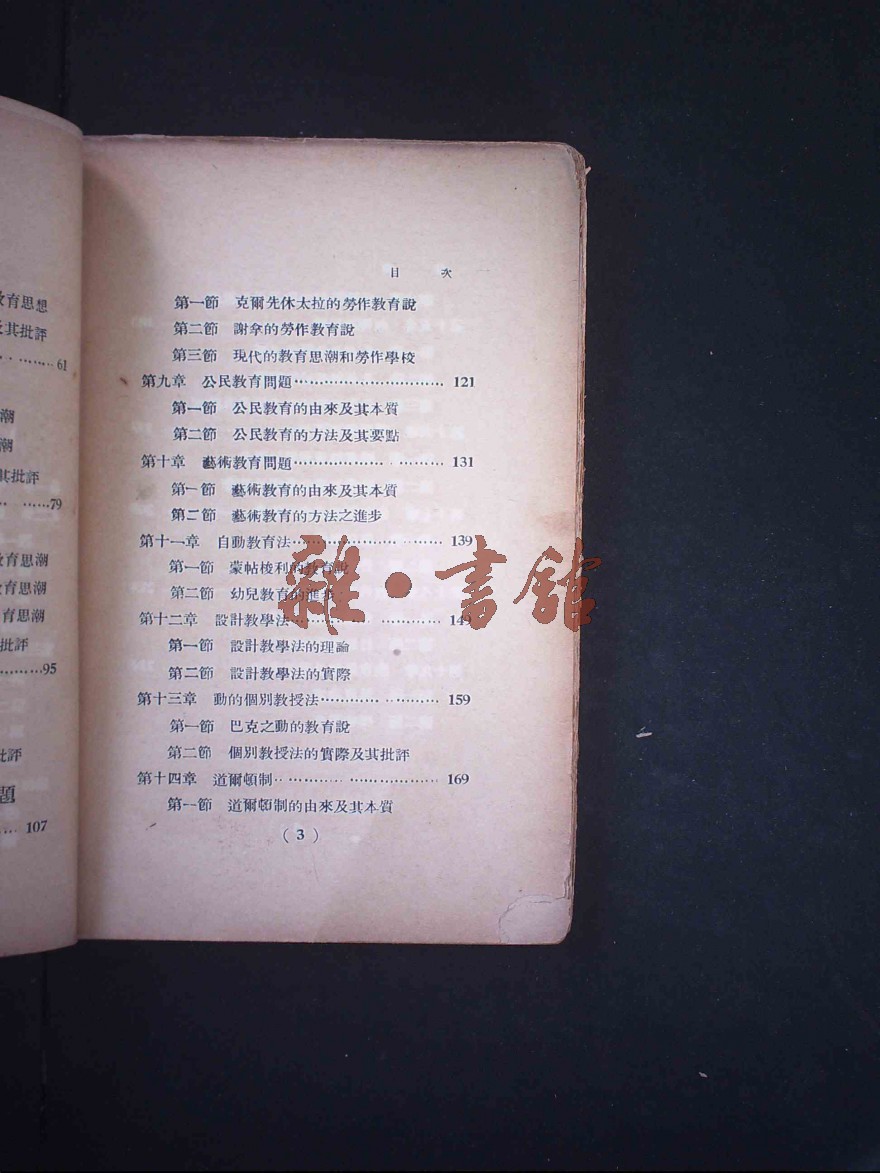 教育思想
及其批評
………61
潮
潮
其批評
……79
教育思潮
教育思潮
育思潮
批評
………95
批評
題
…107
目 次
第一節 克爾先休太拉的勞作教育說
第二節 謝拿的勞作教育說
第三節 現代的教育思潮和勞作學校
第九章 公民教育問題…………………………121
第一節 公民教育的由來及其本質
第二節 公民教育的方法及其要點
第十章 藝術教育問題…………………………131
第一節 藝術教育的由來及其本質
第二節 藝術教育的方法之進步
第十一章 自動教育法…………………………139
第一節 蒙帖梭利的教育說
第二節 幼兒教育的進步
第十二章 設計教學法…………………………149
第一節 設計教學法的理論
第二節 設計教學法的實際
第十三章 動的個別教授法……………………159
第一節 巴克之動的教育說
第二節 個別教授法的實際及其批評
第十四章 道爾頓制……………………………169
第一節 道爾頓制的由來及其本質
(3)
雜·書館